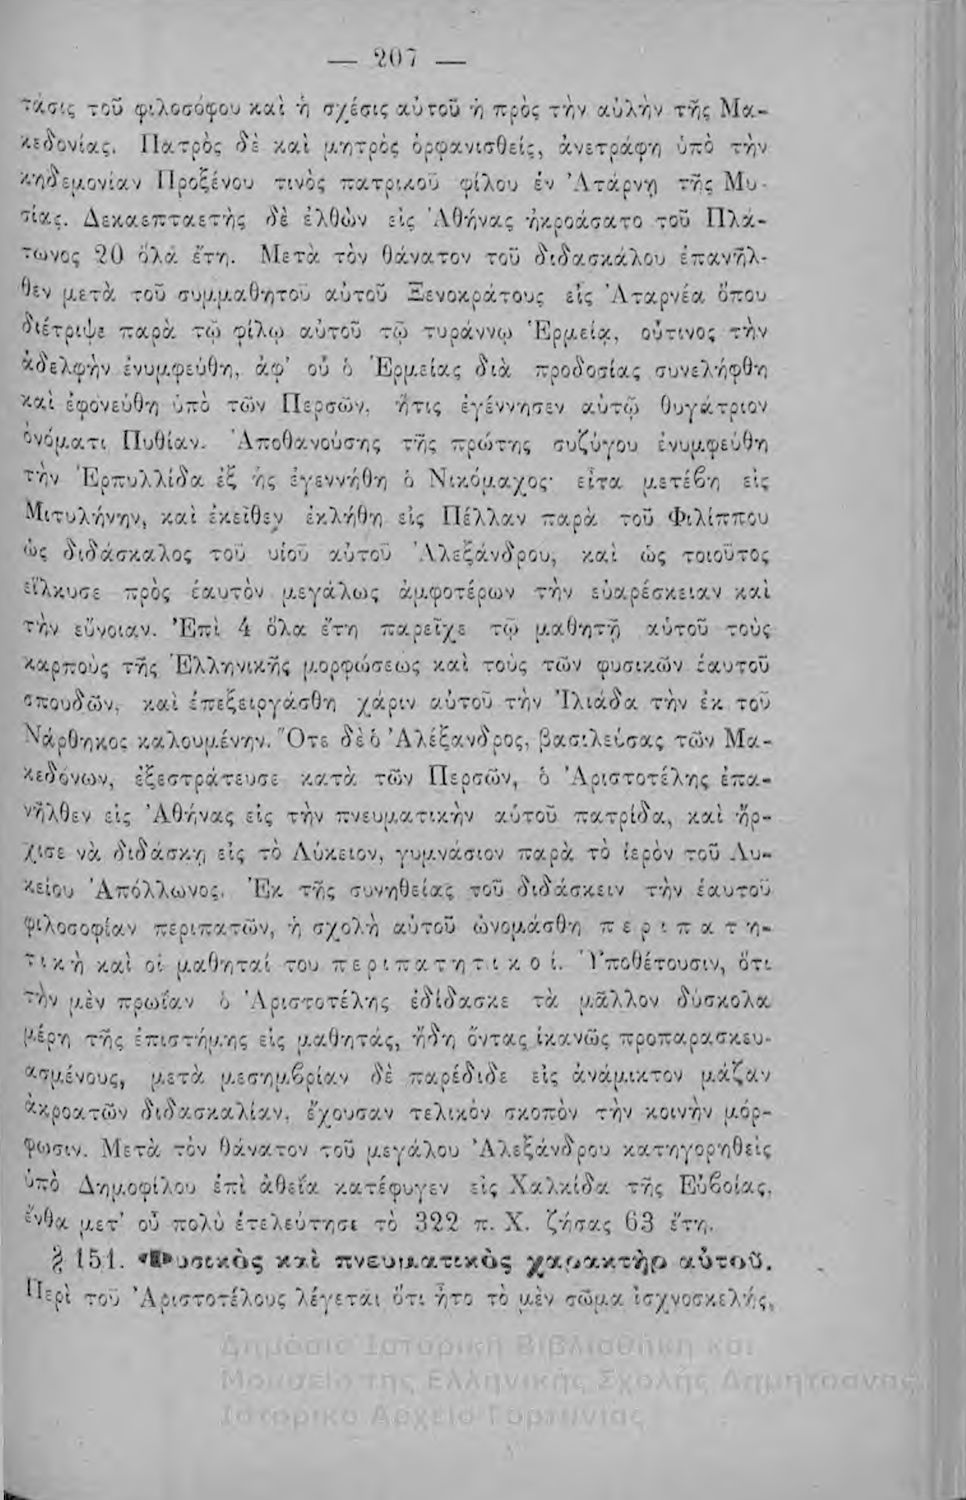 — 207 —
τάσις τοῦ φιλοσόφου καὶ ἡ σχέσις αὐτοῦ ἡ πρὸς τὴν αὐλὴν τῆς Μα-
κεδονίας. Πατρὸς δὲ καὶ μητρὸς ὀρφανισθείς, ἀνετράφη ὑπὸ τὴν
κηδεμονίαν Προξένου τινὸς πατρικοῦ φίλου ἐν Ἀτάρνῃ τῆς Μυ-
σίας. Δεκαεπταετὴς δὲ ἐλθὼν εἰς Ἀθήνας ἠκροάσατο τοῦ Πλά-
τωνος 20 ὅλα ἔτη. Μετὰ τὸν θάνατον τοῦ διδασκάλου ἐπανῆλ-
θεν μετὰ τοῦ συμμαθητοῦ αὐτοῦ Ξενοκράτους εἰς Ἀταρνέα ὅπου
διέτριψε παρὰ τῷ φίλῳ αὐτοῦ τῷ τυράννῳ Ἑρμείᾳ, οὗτινος τὴν
ἀδελφὴν ἐνυμφεύθη, ἀφ’ οὗ ὁ Ἑρμείας διὰ προδοσίας συνελήφθη
καὶ ἐφονεύθη ὑπὸ τῶν Περσῶν, ἥτις ἐγέννησεν αὐτῷ θυγάτριον
ὀνόματι Πυθίαν. Ἀποθανούσης τῆς πρώτης συζύγου ἐνυμφεύθη
τὴν Ἑρπυλλίδα ἐξ ἧς ἐγεννήθη ὁ Νικόμαχος· εἶτα μετέβη εἰς
Μιτυλήνην, καὶ ἐκεῖθεν ἐκλήθη εἰς Πέλλαν παρὰ τοῦ Φιλίππου
ὡς διδάσκαλος τοῦ υἱοῦ αὐτοῦ Ἀλεξάνδρου, καὶ ὡς τοιοῦτος
εἵλκυσε πρὸς ἑαυτὸν μεγάλως ἀμφοτέρων τὴν εὐαρέσκειαν καὶ
τὴν εὔνοιαν. Ἐπὶ 4 ὅλα ἔτη παρεῖχε τῷ μαθητῇ αὐτοῦ τοὺς
καρποὺς τῆς Ἑλληνικῆς μορφώσεως καὶ τοὺς τῶν φυσικῶν ἑαυτοῦ
σπουδῶν, καὶ ἐπεξειργάσθη χάριν αὐτοῦ τὴν Ἰλιάδα τὴν ἐκ τοῦ
Νάρθηκος καλουμένην. Ὅτε δὲ ὁ Ἀλέξανδρος, βασιλεύσας τῶν Μα-
κεδόνων, ἐξεστράτευσε κατὰ τῶν Περσῶν, ὁ Ἀριστοτέλης ἐπα-
νῆλθεν εἰς Ἀθήνας εἰς τὴν πνευματικὴν αὐτοῦ πατρίδα, καὶ ἤρ-
χισε νὰ διδάσκῃ εἰς τὸ Λύκειον, γυμνάσιον παρὰ τὸ ἱερὸν τοῦ Λυ-
κείου Ἀπόλλωνος. Ἐκ τῆς συνηθείας τοῦ διδάσκειν τὴν ἑαυτοῦ
φιλοσοφίαν περιπατῶν, ἡ σχολὴ αὐτοῦ ὠνομάσθη περιπατη-
τικὴ καὶ οἱ μαθηταί του περιπατητικοί. Ὑποθέτουσιν, ὅτι
τὴν μὲν πρωΐαν ὁ Ἀριστοτέλης ἐδίδασκε τὰ μᾶλλον δύσκολα
μέρη τῆς ἐπιστήμης εἰς μαθητάς, ἤδη ὄντας ἱκανῶς προπαρασκευ-
ασμένους, μετὰ μεσημβρίαν δὲ παρέδιδε εἰς ἀνάμικτον μάζαν
ἀκροατῶν διδασκαλίαν, ἔχουσαν τελικὸν σκοπὸν τὴν κοινὴν μόρ-
φωσιν. Μετὰ τὸν θάνατον τοῦ μεγάλου Ἀλεξάνδρου κατηγορηθεὶς
ὑπὸ Δημοφίλου ἐπὶ ἀθεΐα κατέφυγεν εἰς Χαλκίδα τῆς Εὐβοίας,
ἔνθα μετ’ οὐ πολὺ ἐτελεύτησε τὸ 322 π. Χ. ζήσας 63 ἔτη.
§ 151. Φυσικὸς καὶ πνευματικὸς χαρακτὴρ αὐτοῦ.
Περὶ τοῦ Ἀριστοτέλους λέγεται ὅτι ἦτο τὸ μὲν σῶμα ἰσχνοσκελής,
Δημόσια Ιστορική Βιβλιοθήκη και
Μουσείο της Ελληνικής Σχολής Δημητσάνας
Ιστορικό Αρχείο Γορτυνίας